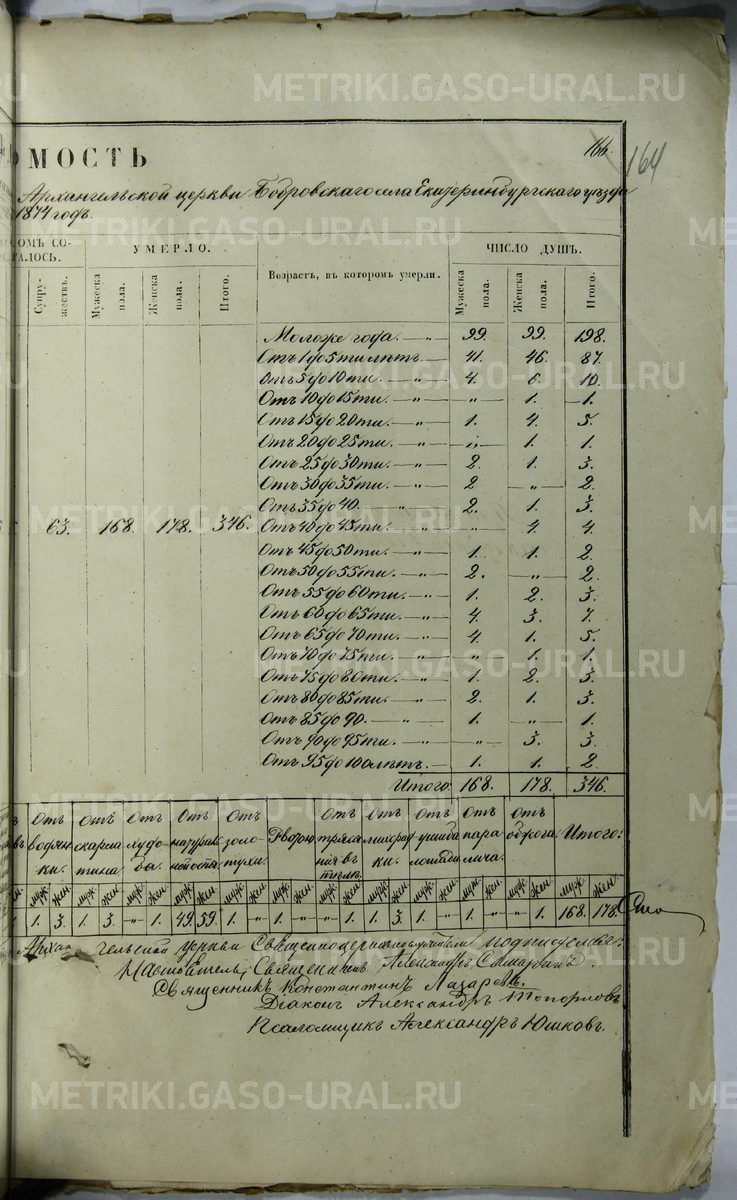 METRIKI.GASO-URAL.RU
ОМОСТЬ
166.
164
Архангельской церкви Бобровскаго села Екатеринбургскаго уѣзда
1874 годъ.
КОМЪ СО-
ТАЛОСЬ.
УМЕРЛО.
Возрастъ, въ которомъ умерли.
ЧИСЛО ДУШЪ.
Супру-
жествъ.
Мужеска
пола.
Женска
пола.
Итого.
Мужеска
пола.
Женска
пола.
Итого.
Моложе года. — „ — 99. 99. 198.
Отъ 1 до 5ти лѣтъ. — 41. 46. 87.
Отъ 5 до 10ти. — „ 4. 6. 10.
Отъ 10 до 15ти — „ — „ 1. 1.
Отъ 15 до 20ти. — „ 1. 4. 5.
Отъ 20 до 25ти — „ — „ 1. 1.
Отъ 25 до 30ти. — „ 2. 1. 3.
Отъ 30 до 35ти. — „ 2 „ 2.
Отъ 35 до 40. „ 2. 1. 3.
63. 168. 178. 346. Отъ 40 до 45ти. — „ „ 4. 4.
Отъ 45 до 50ти. — „ 1. 1. 2.
Отъ 50 до 55ти. — „ 2. „ 2.
Отъ 55 до 60ти. — „ 1. 2. 3.
Отъ 60 до 65ти. — „ 4. 3. 7.
Отъ 65 до 70ти. — „ 4. 1. 5.
Отъ 70 до 75ти. — „ „ 1. 1.
Отъ 75 до 80ти. — „ 1. 2. 3.
Отъ 80 до 85ти. — „ 2. 1. 3.
Отъ 85 до 90. — „ 1. „ 1.
Отъ 90 до 95ти. — „ „ 3. 3.
Отъ 95 до 100 лѣтъ. — 1. 1. 2.
Итого: 168. 178. 346.
Отъ водянки. Отъ скарлатина. Отъ Отъ натужности Отъ золотухи. Отъ трясения въ Отъ лихорадки. Отъ Отъ паралича. Отъ Итого:
жен. муж. жен. муж. жен. муж. жен. муж. жен. муж. жен. муж. жен. муж. жен. муж. жен. муж. жен. муж. жен. муж. жен. муж. жен.
1. 3. 1. 3. „ 1. 49. 59. 1. „ 1. „ „ 1. 1. 3. 1. „ 1. „ „ 1. 168. 178.
Архангельской церкви Священноцерковнослужители подписуемся:
Настоятель, Священникъ Александръ
Священникъ Константинъ Лазаревъ.
Діаконъ Александръ Топорковъ
Псаломщикъ Александръ Юшковъ.
METRIKI.GASO-URAL.RU